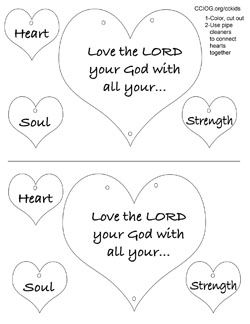 CCJOG.org/cckids
1-Color, cut out
2-Use pipe
cleaners
to connect
hearts
together
Heart
Love the LORD
your God with
all your...
Soul
Strength
Heart
Love the LORD
your God with
all your...
Soul
Strength